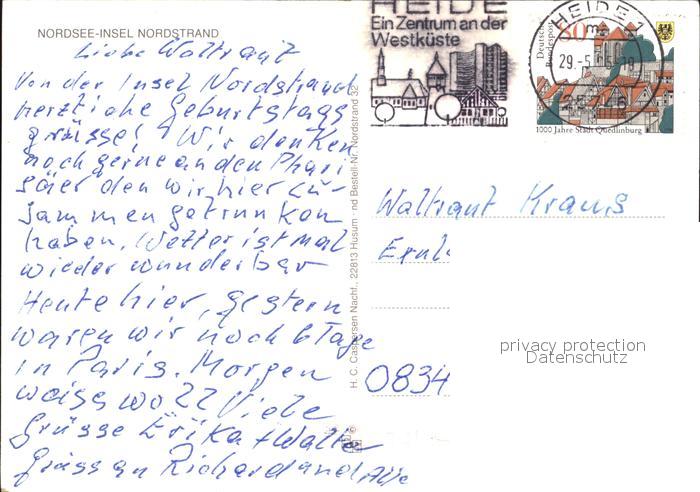 NORDSEE-INSEL NORDSTRAND
Liebe Waltraut
Von der Insel Nordstrand
herzliche Geburtstags
grüsse! Wir denken
noch gerne an den Phari
säer den wir hier zu-
sammen getrunken
haben. Wetter ist mal
wieder wunderbar
Heute hier, gestern
waren wir noch 6 Tage
in Paris. Morgen
weiss wo?? Viele
Grüsse Erika + Walte
Gruss an Richard and
H. C. Caspersen Nachf., 22813 Husum · nd Bestell-Nr. Nordstrand 32
HEIDE
Ein Zentrum an der
Westküste
HEIDE 1
29.-5.
Deutsche
Bundespost
80
1000 Jahre Stadt Quedlinburg
Waltraut Kraus
0834
privacy protection
Datenschutz